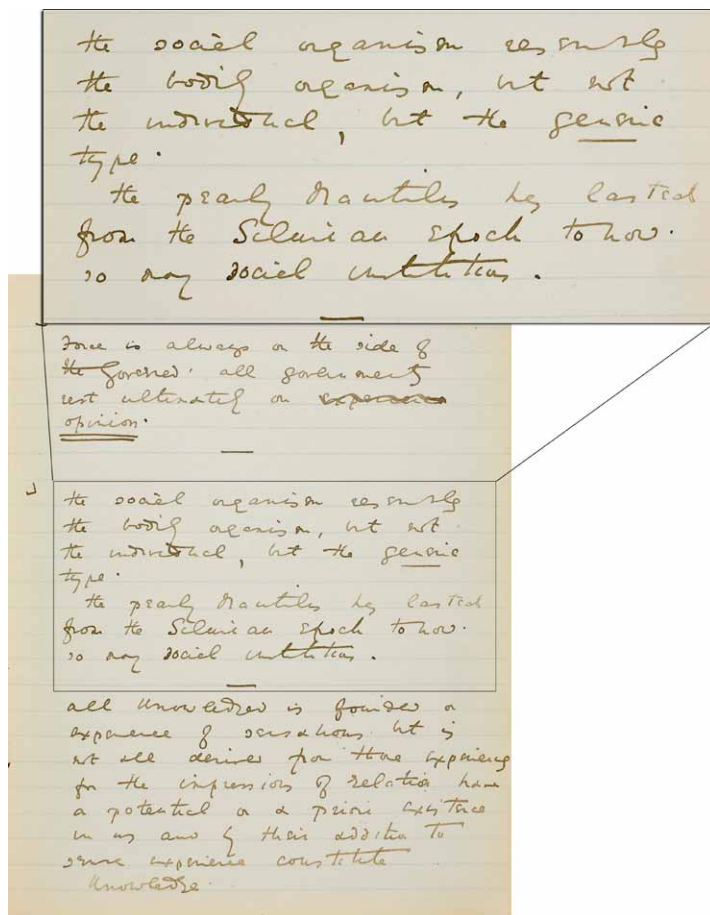 the social organism resembles
the bodily organism, but not
the individual, but the generic
type.
the pearly Nautilus has lasted
from the Silurian Epoch to now.
so may social institutions.
Force is always on the side of
the governed. all governments
rest ultimately on experience
opinion.
the social organism resembles
the bodily organism, but not
the individual, but the generic
type.
the pearly Nautilus has lasted
from the Silurian Epoch to now.
so may social institutions.
all knowledge is founded on
experience of sensations but is
not all derived from those experiences
for the impressions of relation have
a potential or a priori existence
in us and by their addition to
sense experience constitute
knowledge.